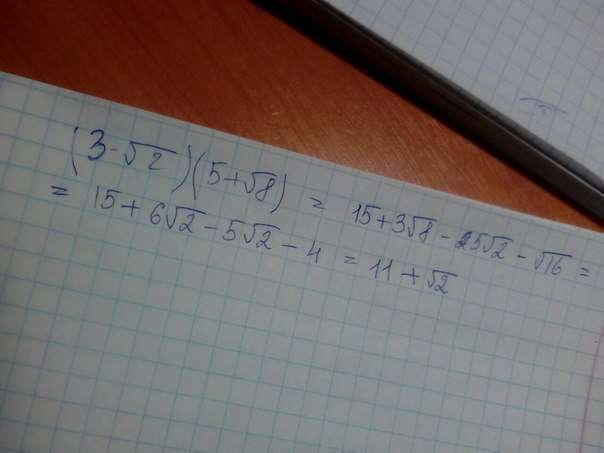 (3-√2)(5+√8) = 15+3√8-5√2-√16 =
= 15+6√2-5√2-4 = 11+√2